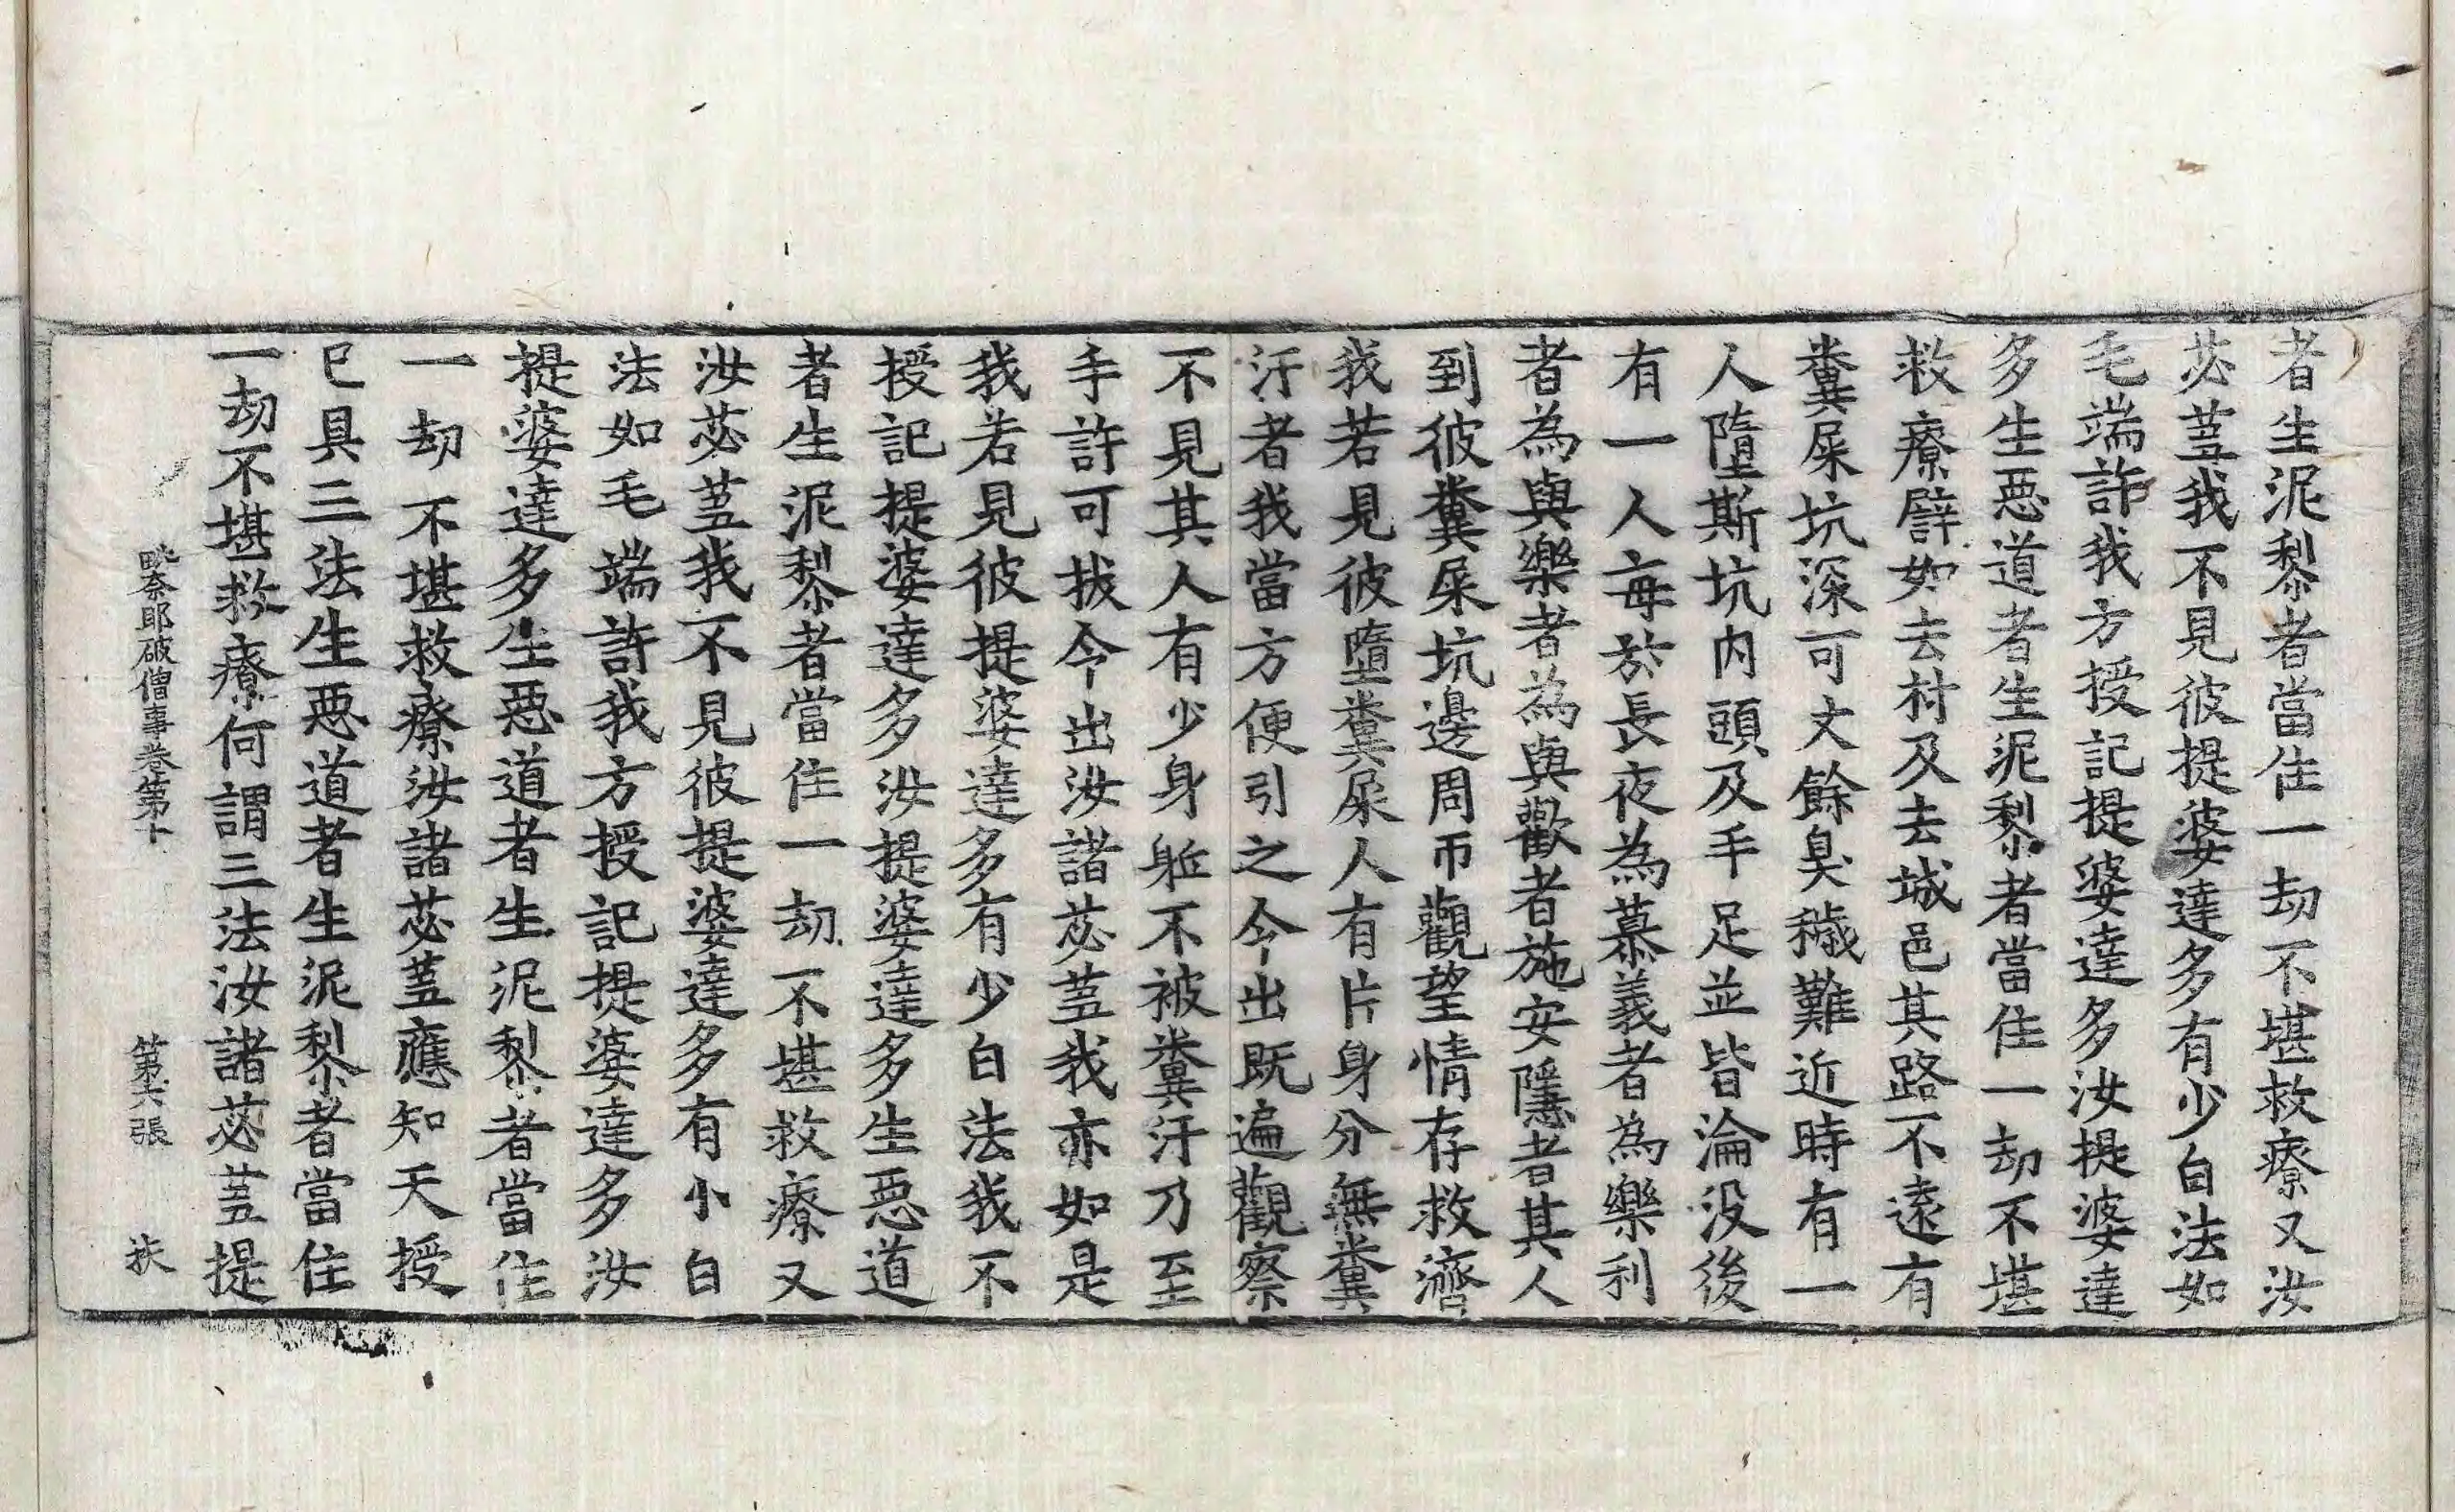 者生泥黎者當住一劫不堪救療又汝
苾蒭我不見彼提婆達多有少白法如
毛端許我方授記提婆達多汝提婆達
多生惡道者生泥黎者當住一劫不堪
救療譬如去村及去城邑其路不遠有
糞屎坑深可丈餘臭穢難近時有一
人墮斯坑内頭及手足並皆淪没後
有一人每於長夜為慕義者為樂利
者為與樂者為與歡者施安隱者其人
到彼糞屎坑邊周帀觀望情存救濟
我若見彼墮糞屎人有片身分無糞
汙者我當方便引之令出既遍觀察
不見其人有少身𨈛不被糞汙乃至
手許可拔令出汝諸苾蒭我亦如是
我若見彼提婆達多有少白法我不
授記提婆達多汝提婆達多生惡道
者生泥黎者當住一劫不堪救療又
汝苾蒭我不見彼提婆達多有小白
法如毛端許我方授記提婆達多汝
提婆達多生惡道者生泥黎者當住
一劫不堪救療汝諸苾蒭應知天授
已具三法生惡道者生泥黎者當住
一劫不堪救療何謂三法汝諸苾蒭提
毗奈耶破僧事卷第十 第六張 扶